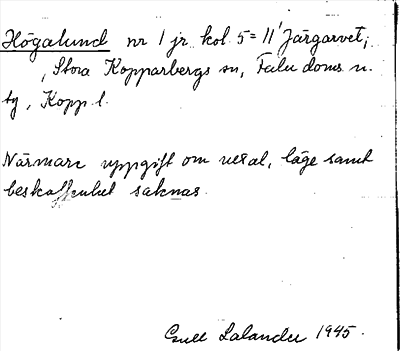 Högalund nr 1 jr kol. 5 = 11 Järgarvet,
, Stora Kopparbergs sn, Falu doms n.
tg, Kopp l.
Närmare uppgift om areal, läge samt
beskaffenhet saknas.
Gull Lalander 1945.